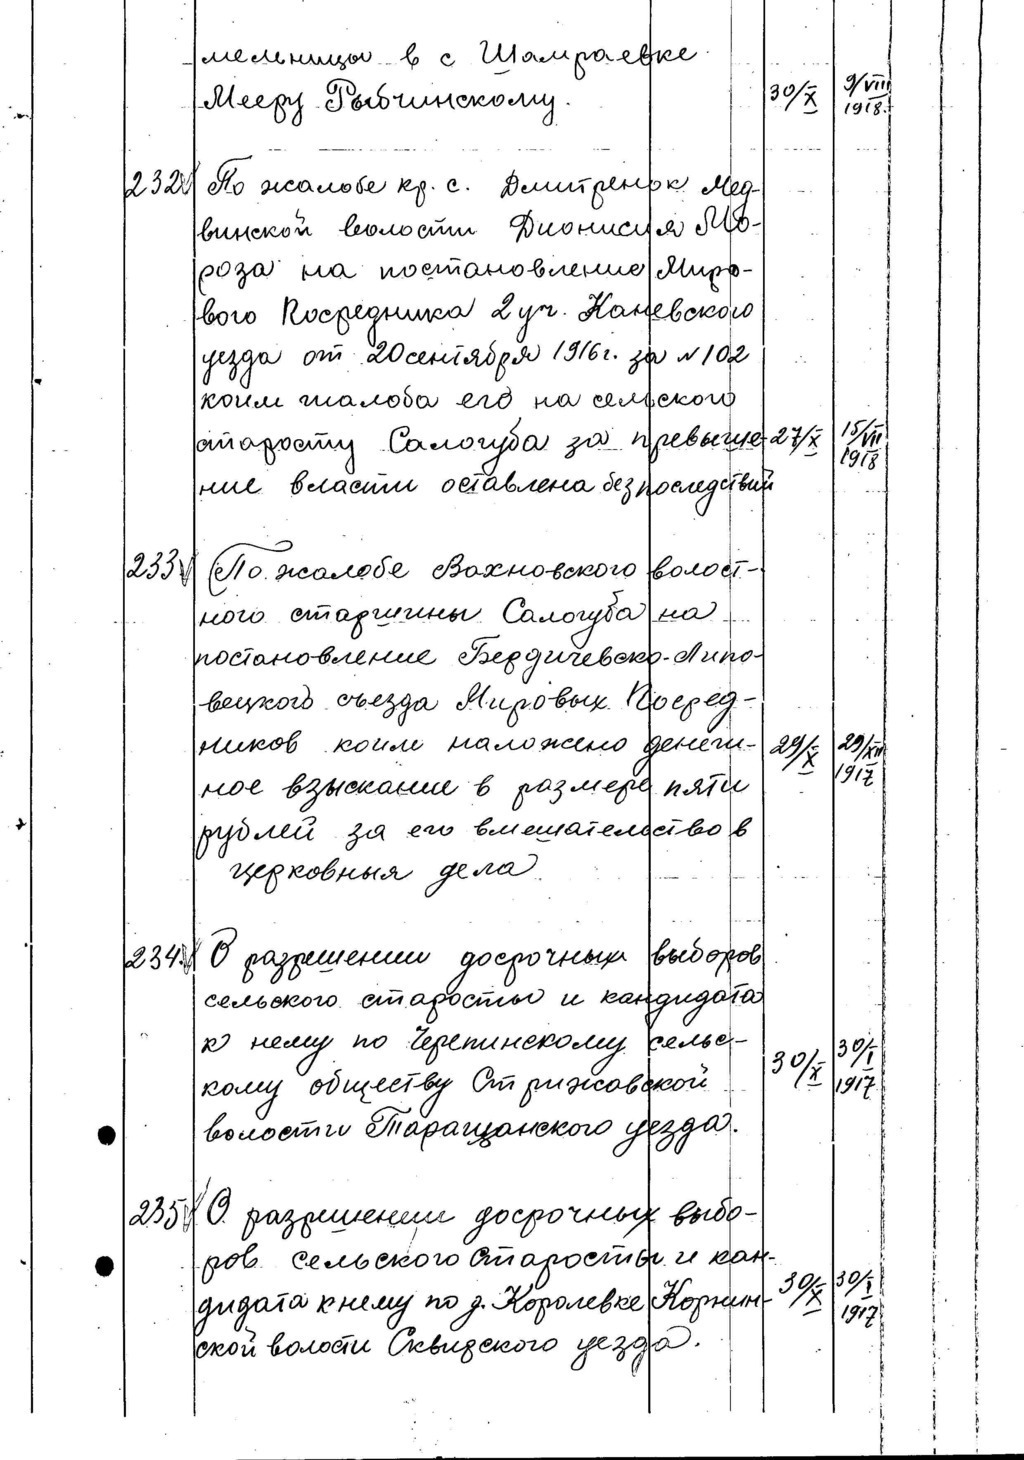 мельницы в с Шамраевке
Мееру Рыбчинскому. 30/X 9/VIII 1918.
232 По жалобе кр. с. Дмитренок Мед-
винской волости Дионисия Мо-
роза на постановление Миро-
вого Посредника 2 уч. Каневского
уезда от 20 сентября 1916 г. за N 102
коим жалоба его на сельского
старосту Салогуба за превыше- 27/X 15/VII 1918
ние власти оставлена без последствий
233 По жалобе Вахновского волост-
ного старшины Салогуба на
постановление Бердичевско-Липо-
вецкого съезда Мировых Посред-
ников коим наложено денеж- 29/X 29/XII 1917
ное взыскание в размере пяти
рублей за его вмешательство в
церковныя дела
234. О разрешении досрочных выборов
сельского старосты и кандидата
к нему по Черепинскому сельс- 30/X 30/I 1917
кому обществу Стрижавской
волости Таращанского уезда.
235 О разрешении досрочных выбо-
ров сельского старосты и кан-
дидата к нему по д. Королевке Корнин- 30/X 30/I 1917
ской волости Сквирского уезда.